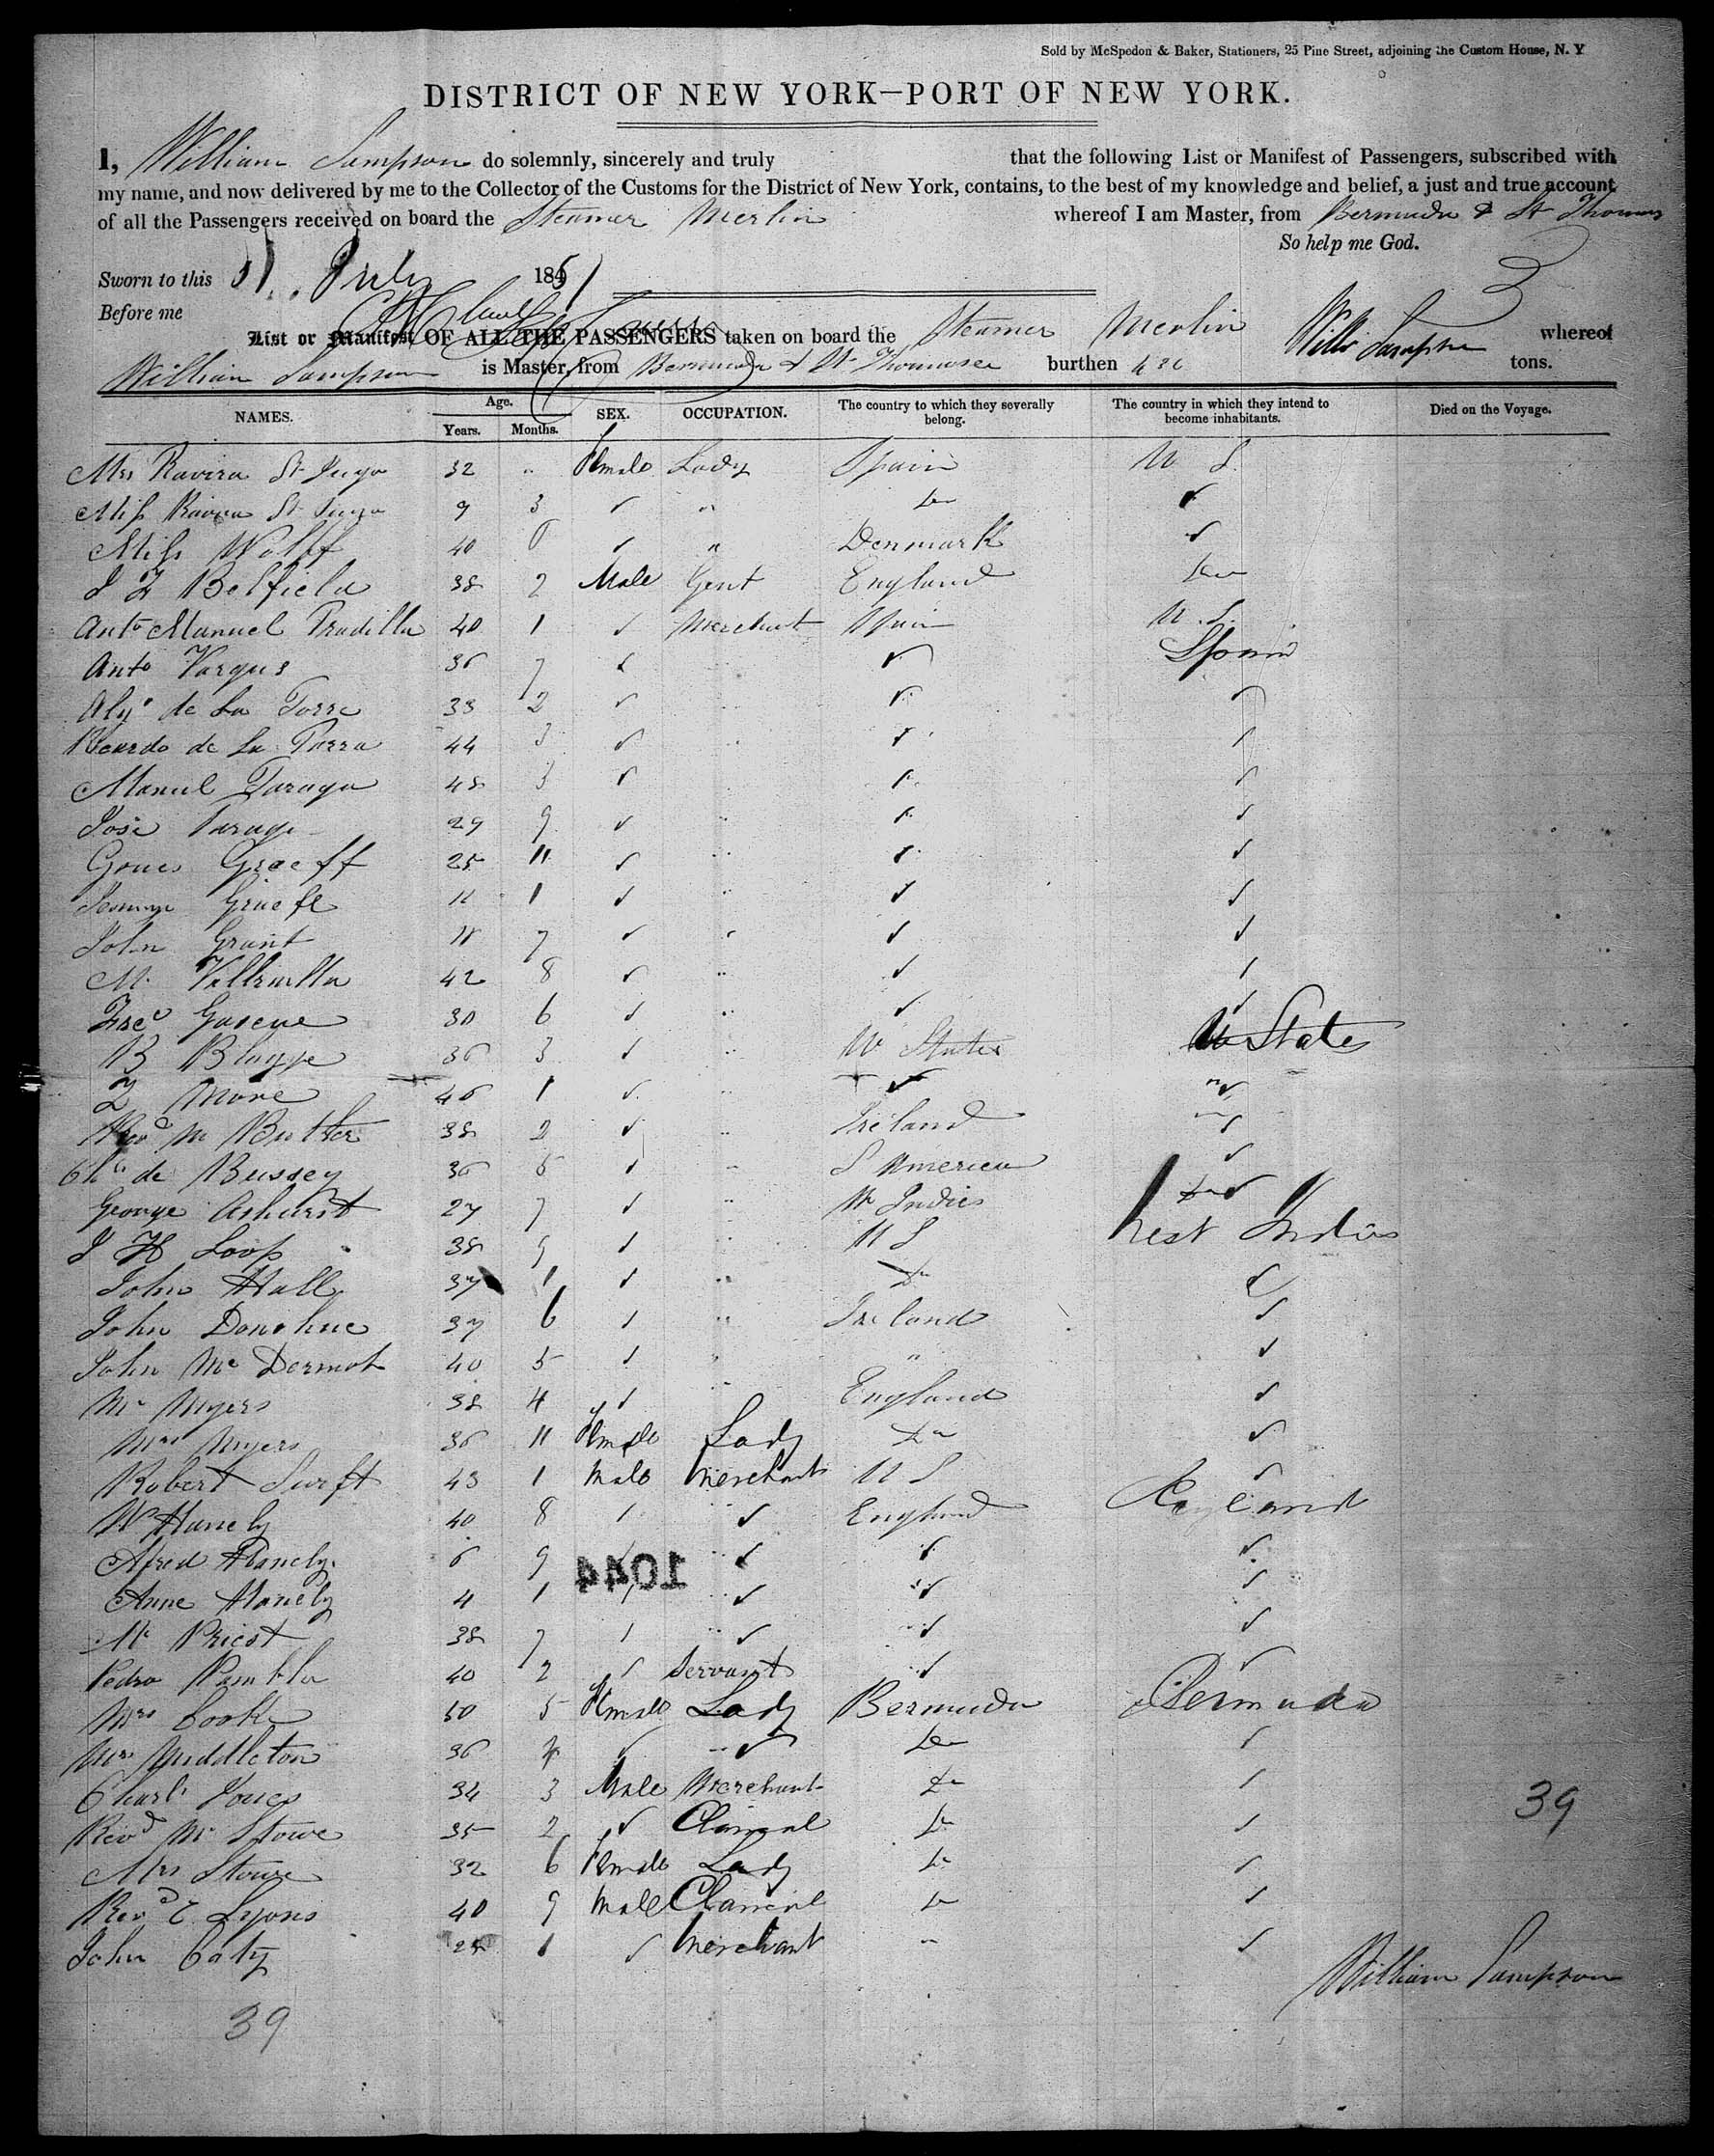 Sold by McSpedon & Baker, Stationers, 25 Pine Street, adjoining the Custom House, N. Y
DISTRICT OF NEW YORK—PORT OF NEW YORK.
I, William Sampson do solemnly, sincerely and truly that the following List or Manifest of Passengers, subscribed with
my name, and now delivered by me to the Collector of the Customs for the District of New York, contains, to the best of my knowledge and belief, a just and true account
of all the Passengers received on board the Steamer Merlin whereof I am Master, from Bermuda & St Thomas
So help me God.
Sworn to this July 1851
Before me
List or Manifest OF ALL THE PASSENGERS taken on board the Steamer Merlin Willm Sampson whereof
William Sampson is Master, from Bermuda & St Thomas burthen tons.
NAMES. Age. SEX. OCCUPATION. The country to which they severally belong. The country in which they intend to become inhabitants. Died on the Voyage.
Years. Months.
Mrs Ravira St 32 " Female Lady Spain U S.
Miss St 9 3 ✓ " Do ✓
Miss Wolff 40 ✓ " Denmark ✓
Belfield 38 2 Male Gent England Do
Anto Manuel Pradilla 40 1 ✓ Merchant Spain U. S.
Anto Vargus 36 7 ✓ " ✓ Spain
de La Torre 33 2 ✓ " ✓ ✓
Ricardo de La Torra 44 3 ✓ " ✓ ✓
Manuel 48 3 ✓ " ✓ ✓
José 29 9 ✓ " ✓ ✓
Graeff 25 11 ✓ " ✓ ✓
11 1 ✓ " ✓ ✓
John Grant 18 7 ✓ " ✓ ✓
M. 42 8 ✓ " ✓ ✓
30 6 ✓ " ✓ ✓
B Blagge 36 3 ✓ " U States U States
Z More 46 1 ✓ " ✓ "✓
Revd M Butler 38 2 ✓ " Ireland ✓
Chs de Bussey 36 5 ✓ " S America ✓
George Ashurst 27 7 ✓ " W Indies Do ✓
J H Loop 38 9 ✓ " U S West Indies
John Hall 37 1 ✓ " Do ✓
John Donohue 37 6 ✓ " Ireland ✓
John Mc Dermot 40 5 ✓ " " ✓
Mr Myers 38 4 ✓ " England ✓
Mrs Myers 36 11 Female Lady Do ✓
Robert Swift 43 1 Male Merchant U S ✓
W Hanely 40 8 ✓ ✓ England England
Alfred Hanely 6 9 ✓ ✓ ✓ ✓
1044
Anne Hanely 4 1 ✓ ✓ ✓ ✓
Mr Priest 38 7 ✓ ✓ ✓ ✓
Pedro Rambla 40 2 ✓ Servant ✓ ✓
Mrs Cooke 50 5 Female Lady Bermuda Bermuda
Mrs Middleton 36 4 ✓ ✓ Do ✓
Charls Jones 34 3 Male Merchant Do ✓
39
Revd Mr Stowe 35 2 ✓ Do ✓
Mrs Stowe 32 6 Female Lady Do ✓
Revd Lyons 40 9 Male Do ✓
John Caty 25 1 ✓ Merchant " ✓
William Sampson
39